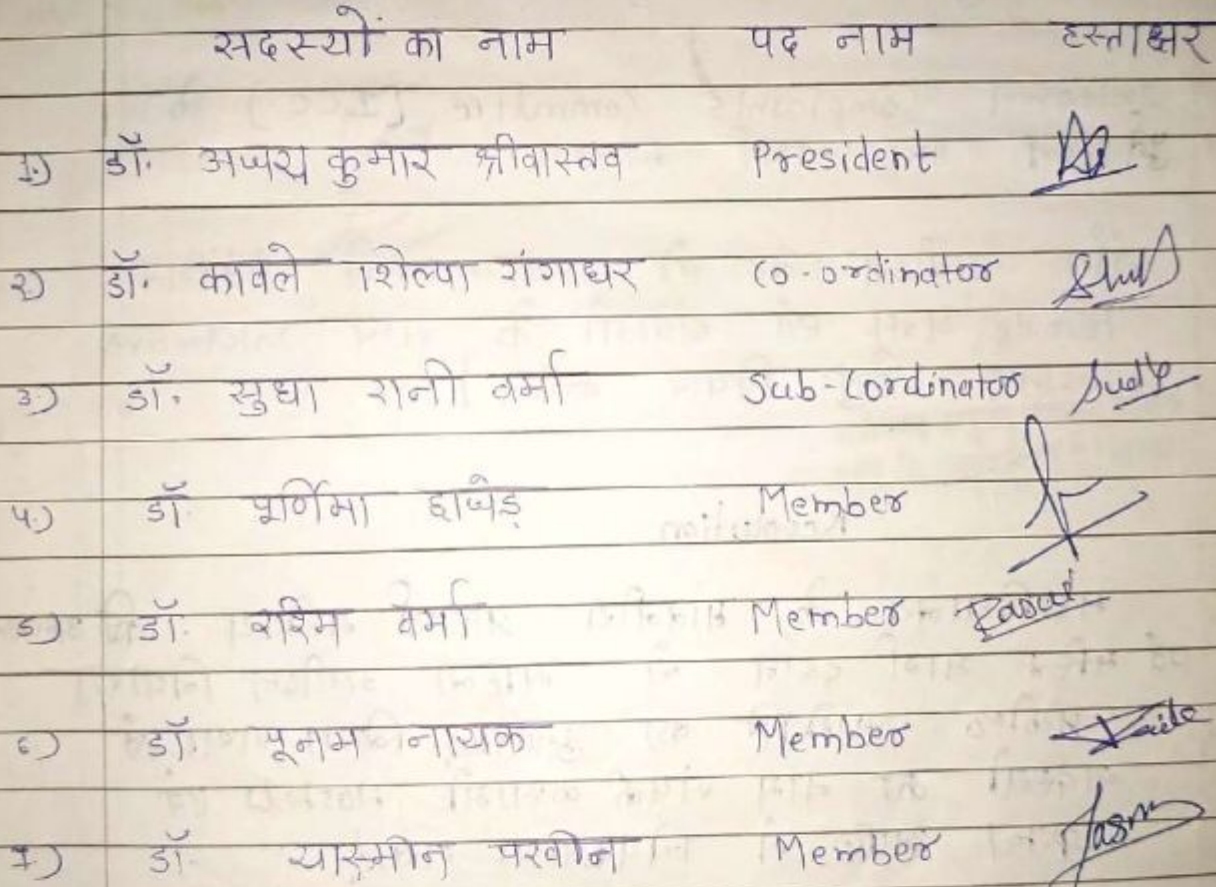 सदस्यों का नाम पद नाम हस्ताक्षर
1.) डॉ. अजय कुमार श्रीवास्तव President
2) डॉ. कावले शिल्पा गंगाधर Co-ordinator
3.) डॉ. सुधा रानी वर्मा Sub-Cordinator
4.) डॉ. पूर्णिमा Member
5) डॉ. रश्मि वर्मा Member
6) डॉ. पूनम नायक Member
7) डॉ. यास्मीन परवीन Member